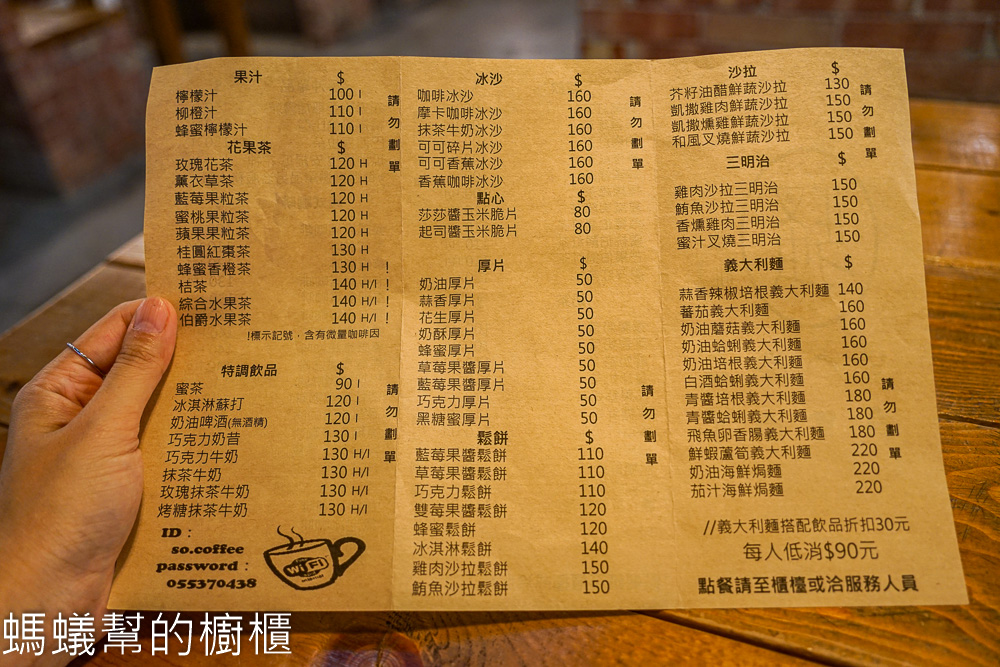 果汁 $
檸檬汁 100 I
柳橙汁 110 I
蜂蜜檸檬汁 110 I
花果茶 $
玫瑰花茶 120 H
薰衣草茶 120 H
藍莓果粒茶 120 H
蜜桃果粒茶 120 H
蘋果果粒茶 120 H
桂圓紅棗茶 130 H
蜂蜜香橙茶 130 H !
桔茶 140 H/I !
綜合水果茶 140 H/I !
伯爵水果茶 140 H/I !
!標示記號，含有微量咖啡因
請勿劃單
特調飲品 $
蜜茶 90 I
冰淇淋蘇打 120 I
奶油啤酒(無酒精) 120 I
巧克力奶昔 130 I
巧克力牛奶 130 H/I
抹茶牛奶 130 H/I
玫瑰抹茶牛奶 130 H/I
烤糖抹茶牛奶 130 H/I
請勿劃單
ID：
so.coffee
password：
055370438
WiFi
冰沙 $
咖啡冰沙 160
摩卡咖啡冰沙 160
抹茶牛奶冰沙 160
可可碎片冰沙 160
可可香蕉冰沙 160
香蕉咖啡冰沙 160
點心 $
莎莎醬玉米脆片 80
起司醬玉米脆片 80
請勿劃單
厚片 $
奶油厚片 50
蒜香厚片 50
花生厚片 50
奶酥厚片 50
蜂蜜厚片 50
草莓果醬厚片 50
藍莓果醬厚片 50
巧克力厚片 50
黑糖蜜厚片 50
鬆餅 $
藍莓果醬鬆餅 110
草莓果醬鬆餅 110
巧克力鬆餅 110
雙莓果醬鬆餅 120
蜂蜜鬆餅 120
冰淇淋鬆餅 140
雞肉沙拉鬆餅 150
鮪魚沙拉鬆餅 150
請勿劃單
沙拉 $
芥籽油醋鮮蔬沙拉 130
凱撒雞肉鮮蔬沙拉 150
凱撒燻雞鮮蔬沙拉 150
和風叉燒鮮蔬沙拉 150
請勿劃單
三明治 $
雞肉沙拉三明治 150
鮪魚沙拉三明治 150
香燻雞肉三明治 150
蜜汁叉燒三明治 150
義大利麵 $
蒜香辣椒培根義大利麵 140
蕃茄義大利麵 160
奶油蘑菇義大利麵 160
奶油蛤蜊義大利麵 160
奶油培根義大利麵 160
白酒蛤蜊義大利麵 160
青醬培根義大利麵 180
青醬蛤蜊義大利麵 180
飛魚卵香腸義大利麵 180
鮮蝦蘆筍義大利麵 220
奶油海鮮焗麵 220
茄汁海鮮焗麵 220
請勿劃單
//義大利麵搭配飲品折扣30元
每人低消$90元
點餐請至櫃檯或洽服務人員
螞蟻幫的櫥櫃